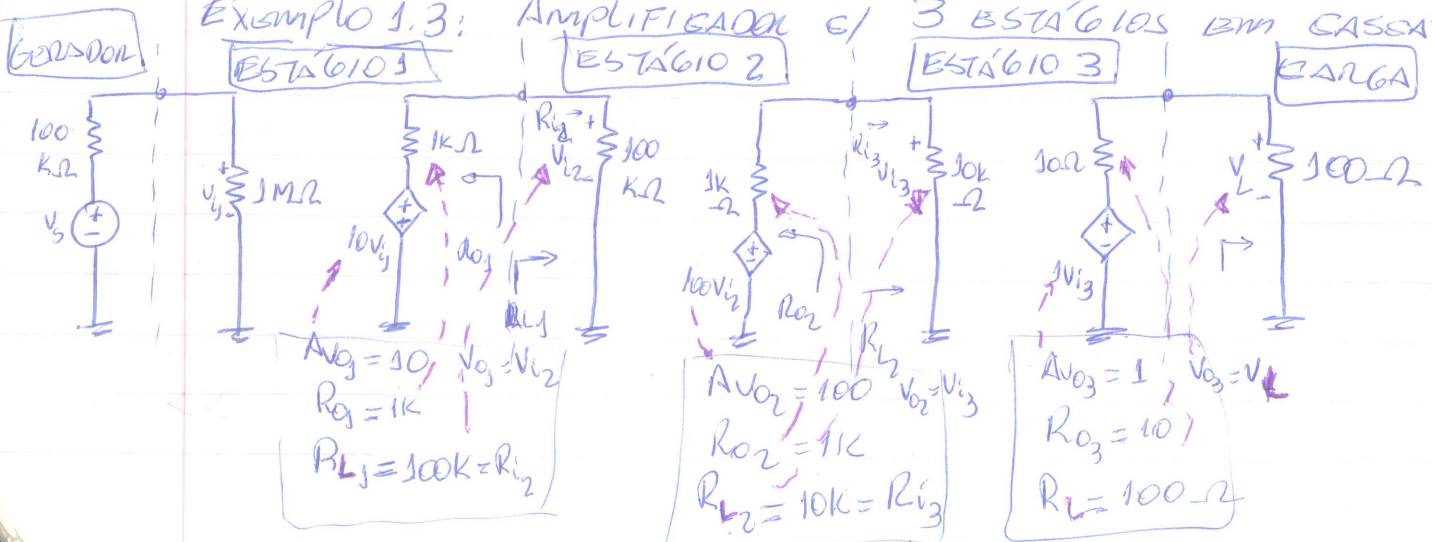 EXEMPLO 1.3: AMPLIFICADOR C/ 3 ESTÁGIOS EM CASCA
GERADOR
ESTÁGIO 1
ESTÁGIO 2
ESTÁGIO 3
CARGA
100 KΩ
Vs
+
-
+
Vi1
-
1MΩ
1KΩ
10Vi1
Ro1
RL1
Ri2
+
Vi2
-
100 KΩ
1K Ω
100Vi2
Ro2
RL2
Ri3
+
Vi3
10K Ω
10Ω
1Vi3
+
VL
-
100Ω
Avo1 = 10 Vo1 = Vi2
Ro1 = 1K
RL1 = 100K = Ri2
Avo2 = 100 Vo2 = Vi3
Ro2 = 1K
RL2 = 10K = Ri3
Avo3 = 1 Vo3 = VL
Ro3 = 10
RL = 100Ω